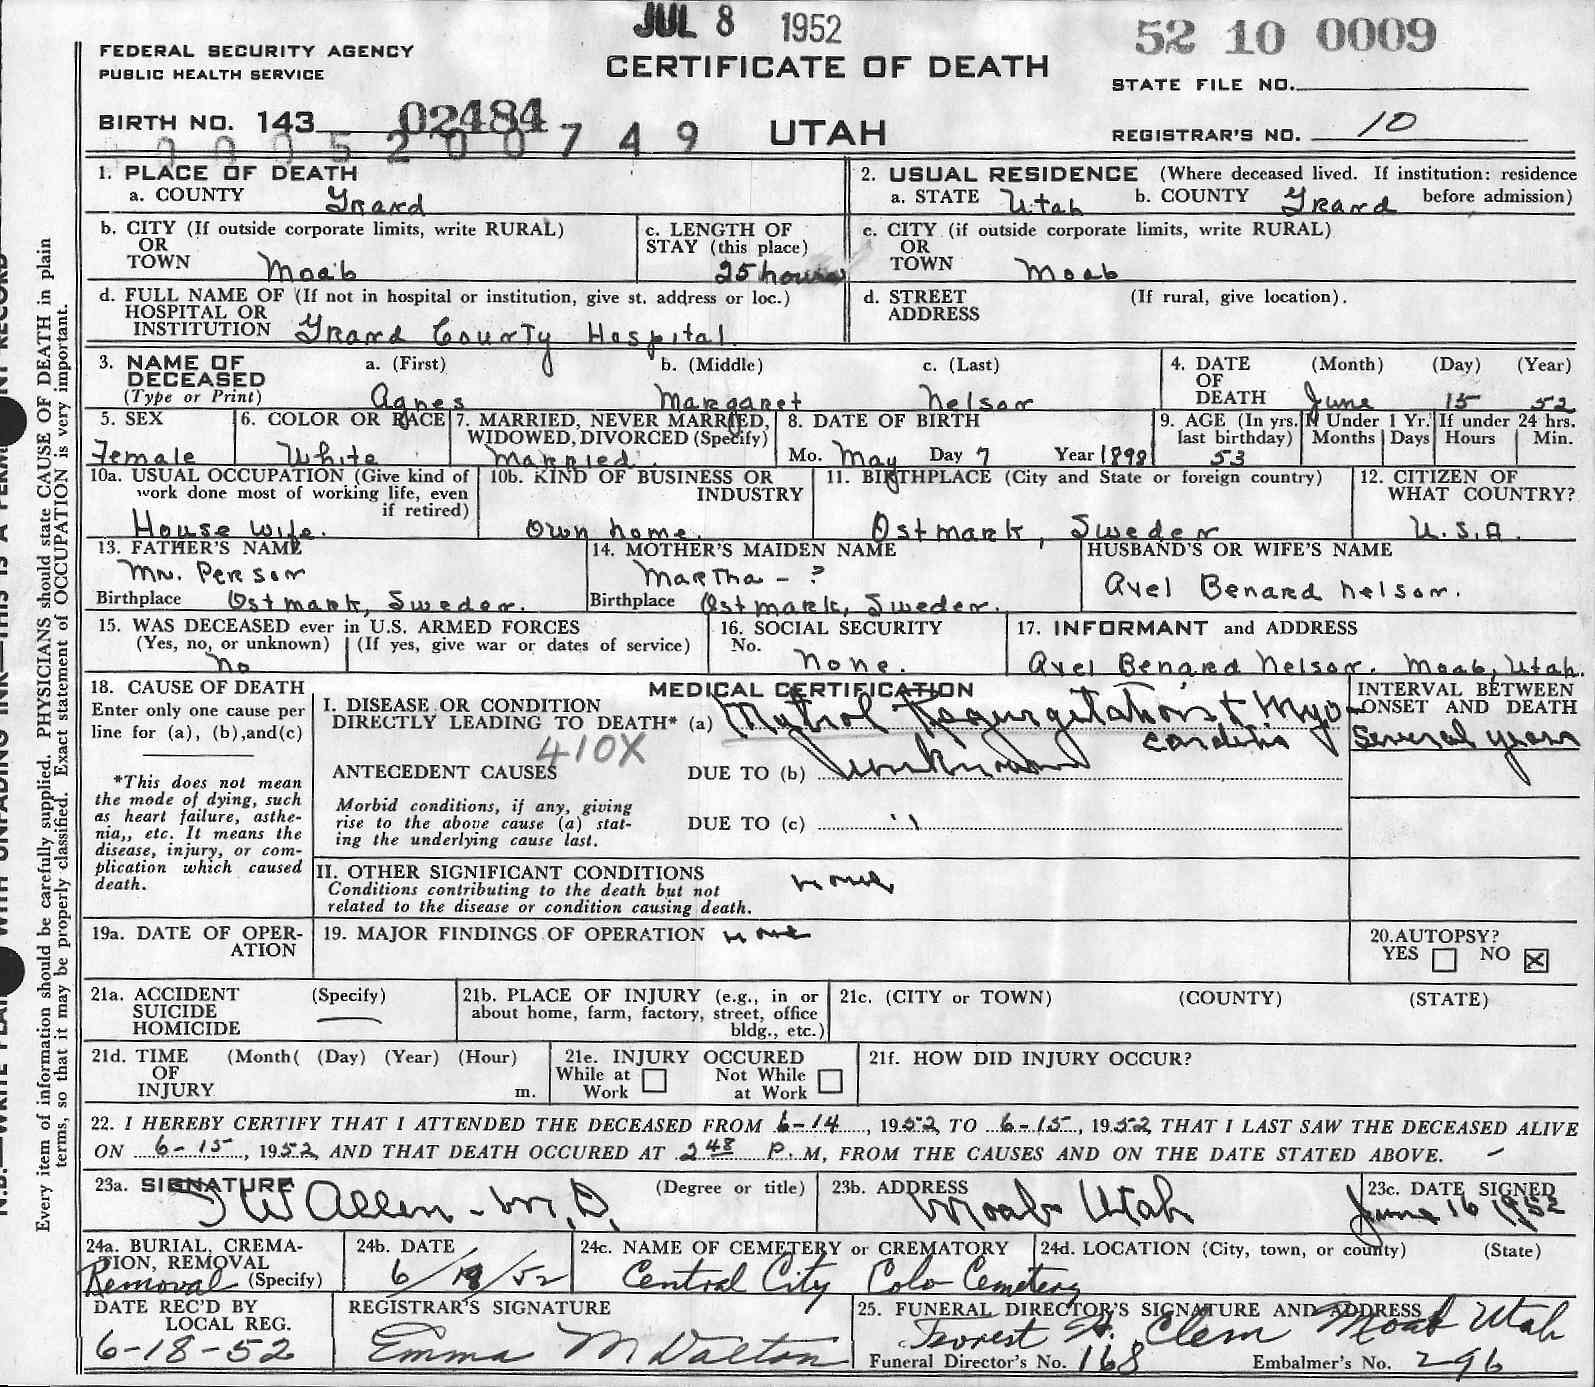 JUL 8 1952
52 10 0009
FEDERAL SECURITY AGENCY
PUBLIC HEALTH SERVICE
CERTIFICATE OF DEATH
STATE FILE NO.
BIRTH NO. 143 02484
0005200749
UTAH
REGISTRAR'S NO. 10
1. PLACE OF DEATH
a. COUNTY Grand
2. USUAL RESIDENCE (Where deceased lived. If institution: residence before admission)
a. STATE Utah b. COUNTY Grand
b. CITY (If outside corporate limits, write RURAL)
OR
TOWN Moab
c. LENGTH OF
STAY (this place)
25 hours
c. CITY (if outside corporate limits, write RURAL)
OR
TOWN Moab
d. FULL NAME OF (If not in hospital or institution, give st. address or loc.)
HOSPITAL OR
INSTITUTION Grand County Hospital
d. STREET (If rural, give location).
ADDRESS
3. NAME OF
DECEASED
(Type or Print)
a. (First) b. (Middle) c. (Last)
Agnes Margaret Nelson
4. DATE
OF
DEATH
(Month) (Day) (Year)
June 15 52
5. SEX
Female
6. COLOR OR RACE
White
7. MARRIED, NEVER MARRIED,
WIDOWED, DIVORCED (Specify)
Married.
8. DATE OF BIRTH
Mo. May Day 7 Year 1898
9. AGE (In yrs.
last birthday)
53
If Under 1 Yr.
Months Days
If under 24 hrs.
Hours Min.
10a. USUAL OCCUPATION (Give kind of
work done most of working life, even
if retired)
House wife.
10b. KIND OF BUSINESS OR
INDUSTRY
Own home.
11. BIRTHPLACE (City and State or foreign country)
Ostmark, Sweden
12. CITIZEN OF
WHAT COUNTRY?
U.S.A.
13. FATHER'S NAME
Mr. Person
Birthplace Ostmark, Sweden.
14. MOTHER'S MAIDEN NAME
Martha - ?
Birthplace Ostmark, Sweden.
HUSBAND'S OR WIFE'S NAME
Axel Benard Nelson.
15. WAS DECEASED ever in U.S. ARMED FORCES
(Yes, no, or unknown) (If yes, give war or dates of service)
No
16. SOCIAL SECURITY
No.
None.
17. INFORMANT and ADDRESS
Axel Benard Nelson. Moab, Utah.
18. CAUSE OF DEATH
Enter only one cause per
line for (a), (b),and(c)
*This does not mean
the mode of dying, such
as heart failure, asthe-
nia,, etc. It means the
disease, injury, or com-
plication which caused
death.
MEDICAL CERTIFICATION
I. DISEASE OR CONDITION
DIRECTLY LEADING TO DEATH* (a) Mytrol Regurgetation & Myo-
carditis
410X
ANTECEDENT CAUSES DUE TO (b) unknown
Morbid conditions, if any, giving
rise to the above cause (a) stat-
ing the underlying cause last.
DUE TO (c) "
INTERVAL BETWEEN
ONSET AND DEATH
Several years
II. OTHER SIGNIFICANT CONDITIONS
Conditions contributing to the death but not
related to the disease or condition causing death.
none
19a. DATE OF OPER-
ATION
19. MAJOR FINDINGS OF OPERATION none
20.AUTOPSY?
YES NO X
21a. ACCIDENT (Specify)
SUICIDE
HOMICIDE
21b. PLACE OF INJURY (e.g., in or
about home, farm, factory, street, office
bldg., etc.)
21c. (CITY or TOWN) (COUNTY) (STATE)
21d. TIME (Month( (Day) (Year) (Hour)
OF
INJURY m.
21e. INJURY OCCURED
While at Work Not While at Work
21f. HOW DID INJURY OCCUR?
22. I HEREBY CERTIFY THAT I ATTENDED THE DECEASED FROM 6-14, 1952 TO 6-15, 1952 THAT I LAST SAW THE DECEASED ALIVE
ON 6-15, 1952 AND THAT DEATH OCCURED AT 2 48 P. M, FROM THE CAUSES AND ON THE DATE STATED ABOVE.
23a. SIGNATURE (Degree or title)
I W Allen - M.D.
23b. ADDRESS
Moab Utah
23c. DATE SIGNED
June 16 1952
24a. BURIAL, CREMA-
TION, REMOVAL
Removal (Specify)
24b. DATE
6/18/52
24c. NAME OF CEMETERY or CREMATORY
Central City Colo Cemetery
24d. LOCATION (City, town, or county) (State)
DATE REC'D BY
LOCAL REG.
6-18-52
REGISTRAR'S SIGNATURE
Emma M Dalton
25. FUNERAL DIRECTOR'S SIGNATURE AND ADDRESS
Forrest H. Clem Moab Utah
Funeral Director's No. 168 Embalmer's No. 296
Every item of information should be carefully supplied. PHYSICIANS should state CAUSE OF DEATH in plain
terms, so that it may be properly classified. Exact statement of OCCUPATION is very important.